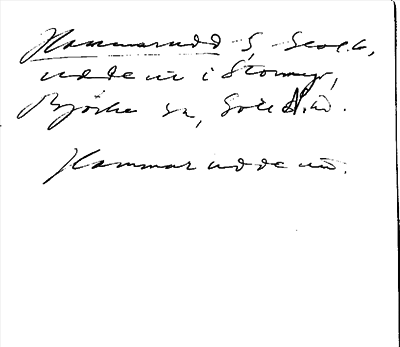 Hammarudd S,
udden i Stormyr,
Björke sn, Gotl.
Hammarudden.